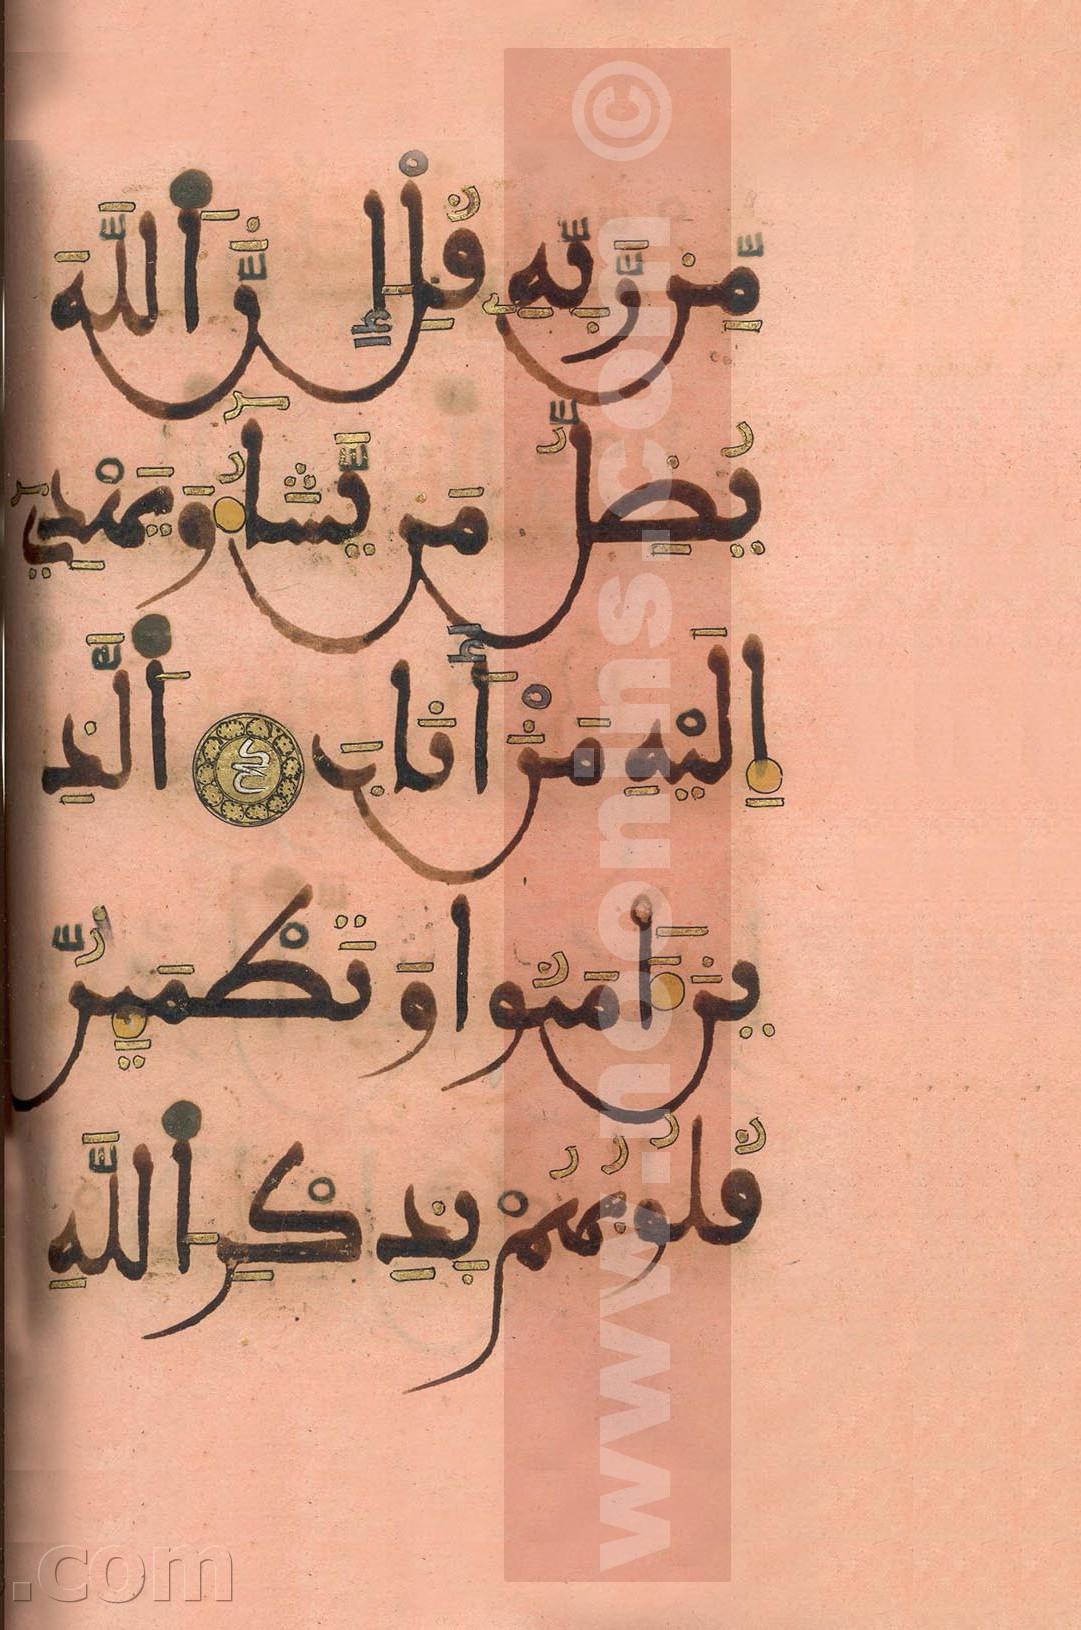 مِّن رَّبِّهِ قُلِ انَّ اَللَّهَ
يُضِلُّ مَن يَّشَآءُ وَيَهْدِي
إِلَيْهِ مَنْ أَنَابَ اَلَّذِ
ينَ ءَامَنُواْ وَتَطْمَئِنُّ
قُلُوبُهُم بِذِكْرِ اِللَّهِ
www.neonins.com ©
.com